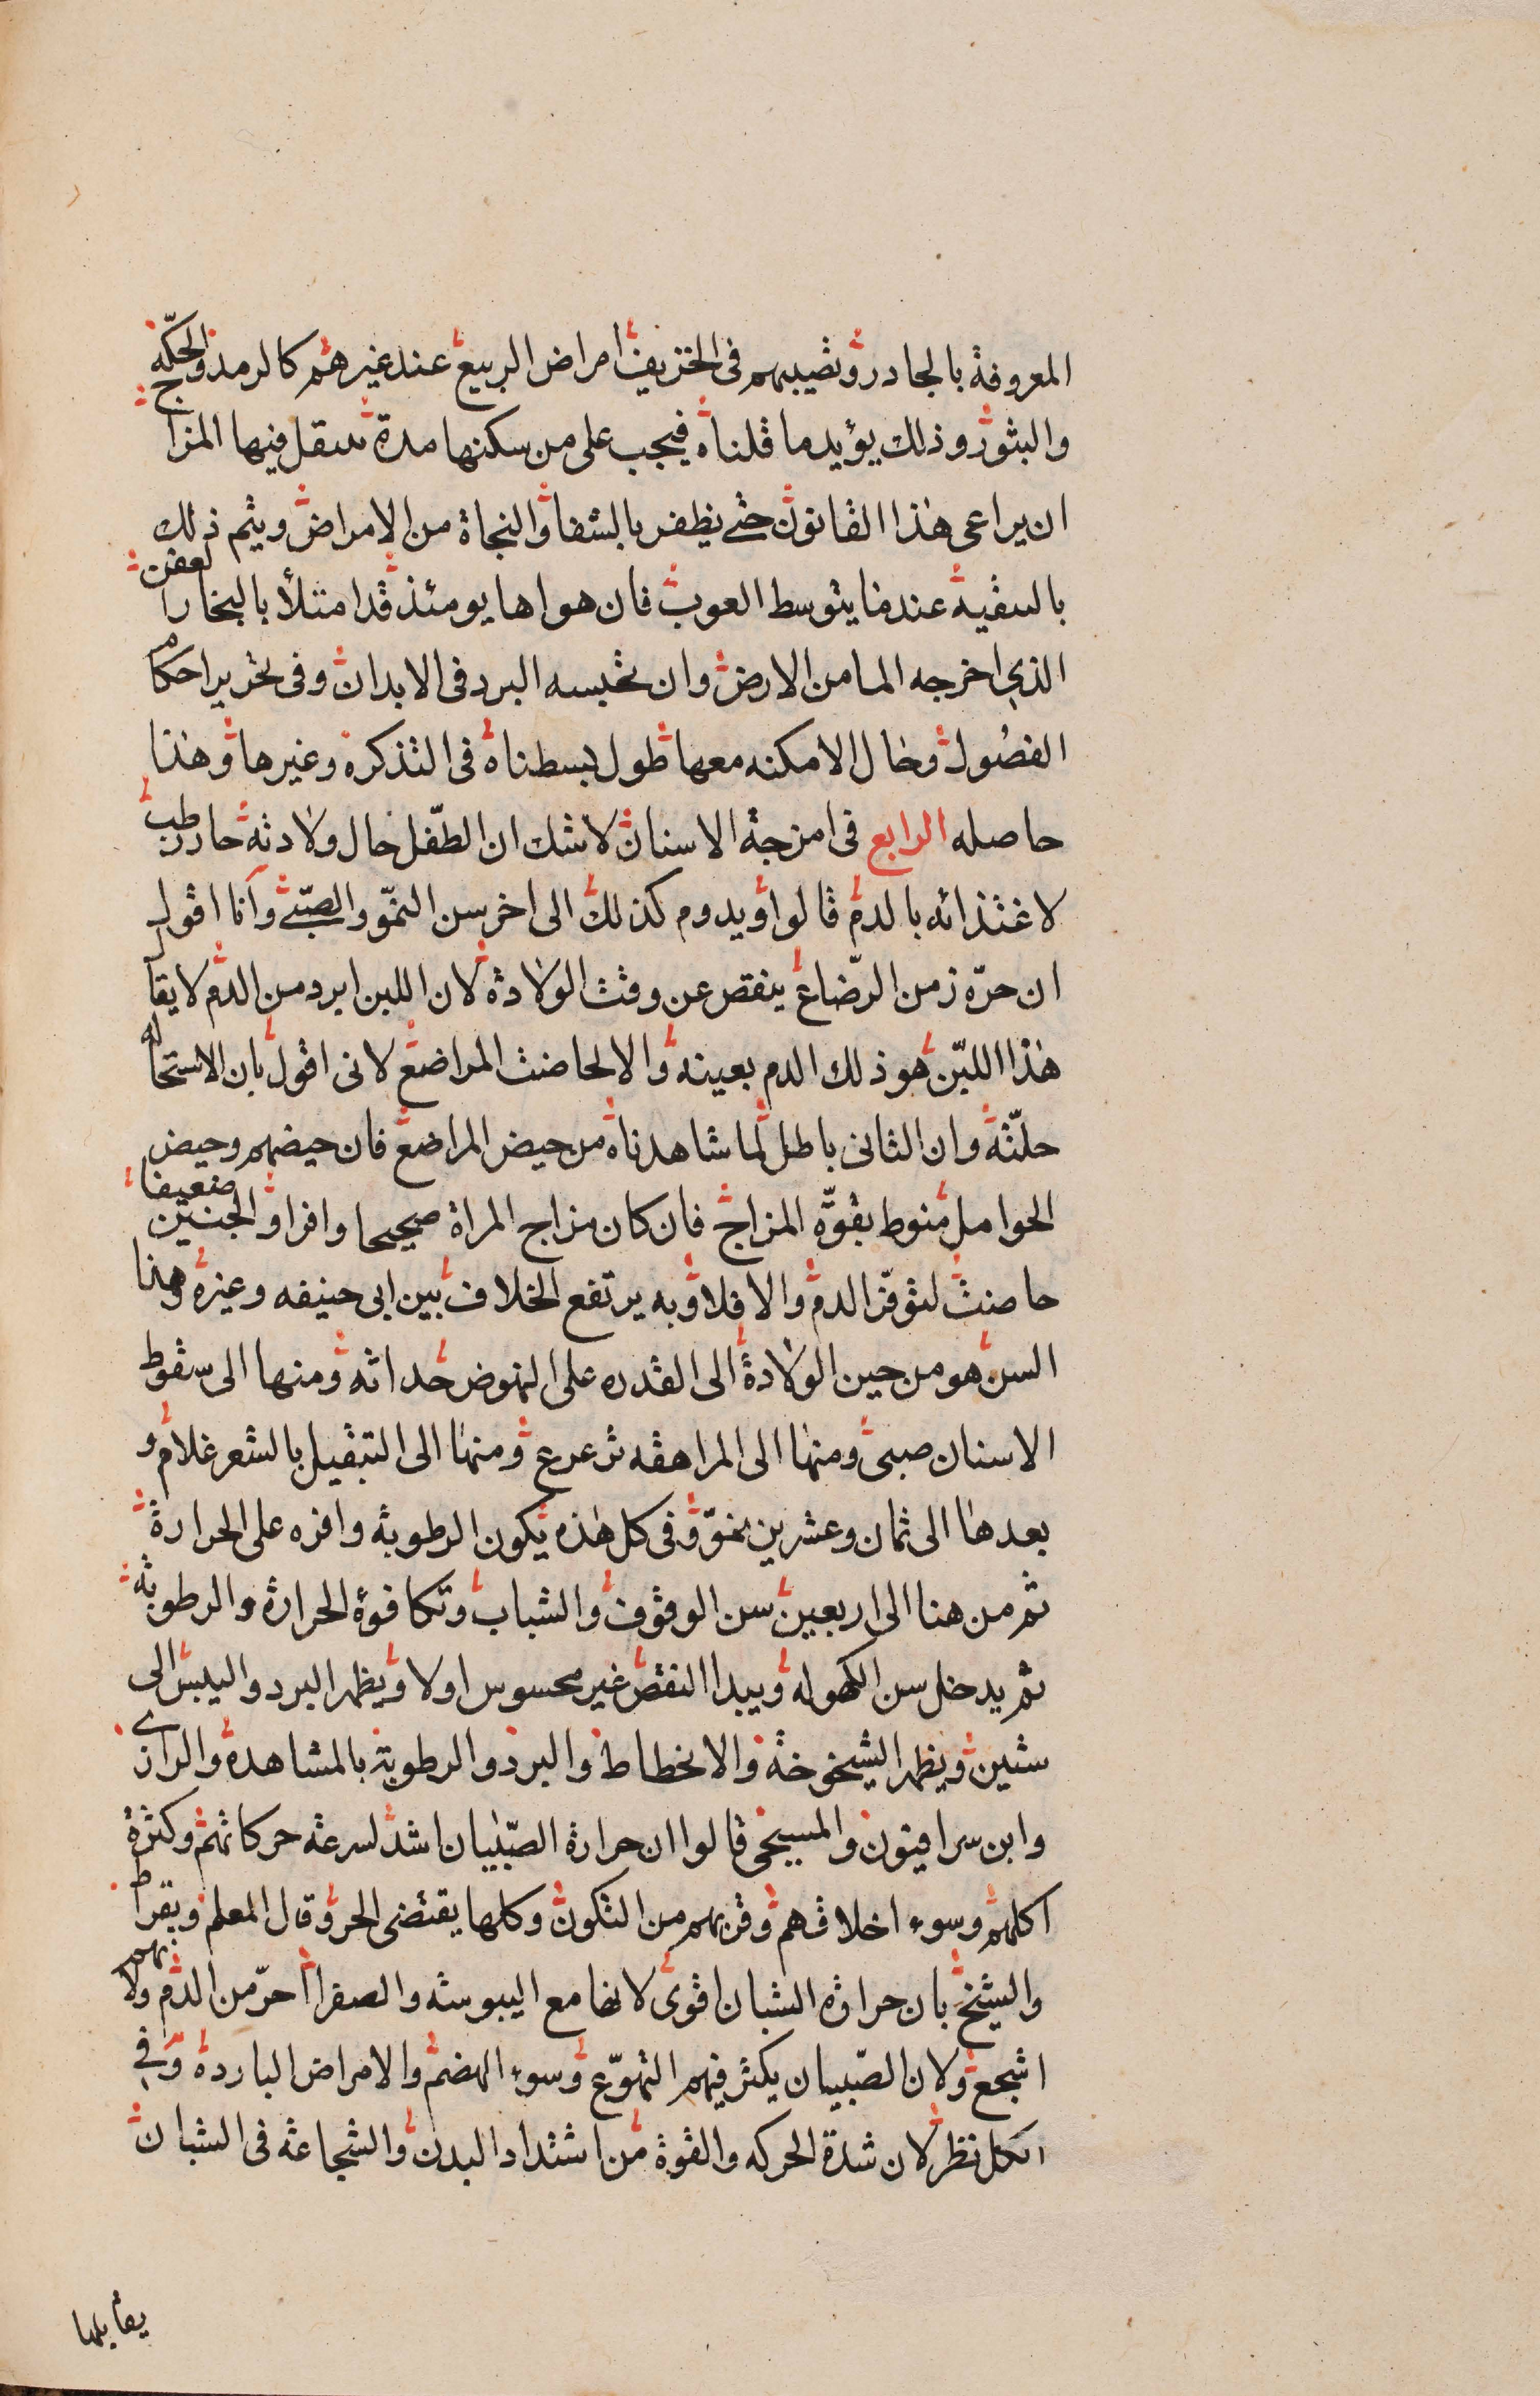 المعروفة بالجادر وتصيبهم فى الخريف امراض الربيع عند غيرهم كالرمد والحكّه
والبثور وذلك يؤيد ما قلناه فيجب على من سكنها مدة ينتقل فيها المزاج
ان يراعى هذا القانون حتى يظفر بالشفا والنجاة من الامراض ويتم ذلك
بالتنقيه عندما يتوسط التوت فان هواها يومئذ قد امتلأ بالبخار العفن
الذى اخرجه الما من الارض وان تحبسه البرد فى الابدان وفى تحرير احكام
الفصُول وحال الامكنه معها طول بسطناه فى التذكره وغيرها وهذا
حاصله الرابع فى امزجة الاسنان لا شك ان الطّفل حال ولادته حار رطب
لاغتذائه بالدم قالوا ويدوم كذلك الى اخر سن النموّ والصبى وانا اقول
ان حرّه زمن الرّضاع ينقص عن وقت الولادة لان اللبن ابرد من الدم لا يقال
هذا اللبن هو ذلك الدم بعينه والا لحاضت المراضع لانى اقول بان الاستحاله
حلّته وان الثانى باطل لما شاهدناه من حيض المراضع فان حيضهم وحيض
الحوامل منوط بقوّه المزاج فان كان مزاج المراة صحيحا وافرا والجنين ضعيفا
حاضت لتوفّر الدم والا فلا وبه يرتفع الخلاف بين ابى حنيفه وغيره وهذا
السن هو من حين الولادة الى القدره على النهوض حداثه ومنها الى سقوط
الاسنان صبى ومنها الى المراهقه ترعرع ومنها الى التبقيل بالشعر غلام و
بعدها الى ثمان وعشرين نموّ وفى كل هذه يكون الرطوبة وافره على الحرارة
ثم من هنا الى اربعين سن الوقوف والشباب وتكافوة الحرارة والرطوبة
ثم يدخل سن الكهوله ويبدا النقص غير محسوس اولا ويظهر البرد واليبس الى
ستين ويظهر الشيخوخة والانحطاط والبرد والرطوبة بالمشاهدة والرازى
وابن سرافيون والمسيحى قالوا ان حرارة الصّبيان اشد لسرعة حركاتهم وكثرة
اكلهم وسوء اخلاقهم وقربهم من التكون وكلها يقتضى الحر وقال المعلم وبقراط
والشيخ بان حرارة الشبان اقوى لانها مع اليبوسة والصفرا احرّ من الدم ولانهم
اشجع ولان الصّبيان يكثر فيهم التهوّع وسوء الهضم والامراض البارده وفى
الكل نظر لان شدة الحركه والقوة من اشتداد البدن والشجاعة فى الشبان
يقابلها